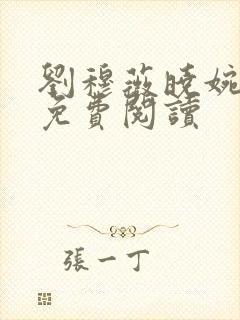 劉穆薇曉婉
免費閱讀
張一丁